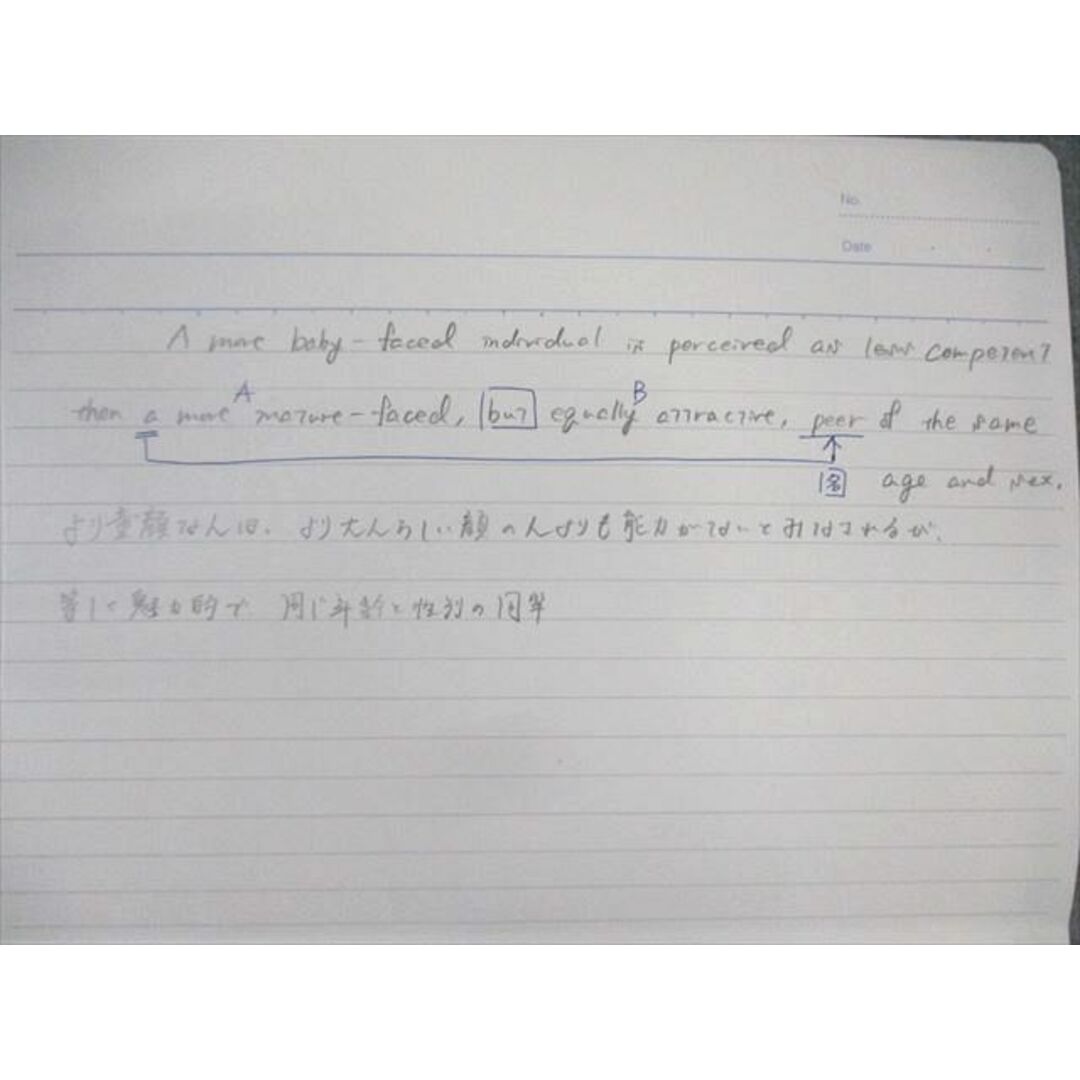 No.
Date
A more baby-faced individual is perceived as less competent
A B
then a more mature-faced, but equally attractive, peer of the same
名 age and sex.
より童顔な人は、より大人らしい顔の人よりも能力がないとみなされるが、
等しく魅力的で 同じ年齢と性別の同等